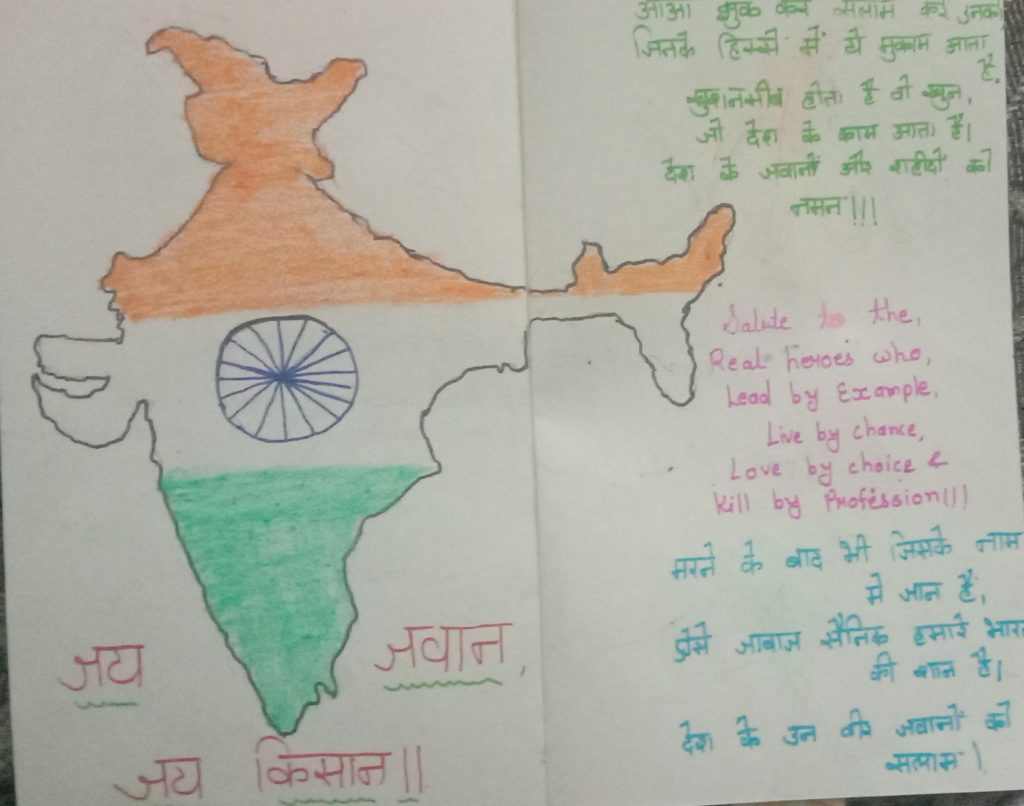 आओ झुक कर सलाम करे उनके
जिनके हिस्से में ये मुकाम आता
है,
खुशनसीब होता है वो खुन,
जो देश के काम आता है।
देश के जवानों और शहीदों को
नमन!!!
Salute to the,
Real heroes who,
Lead by Example,
Live by chance,
Love by choice &
Kill by Profession!!!
मरने के बाद भी जिसके नाम
मे जान है,
ऐसे जाबाज सैनिक हमारे भारत
की शान है।
देश के उन वीर जवानों को
सलाम!
जय जवान,
जय किसान!!